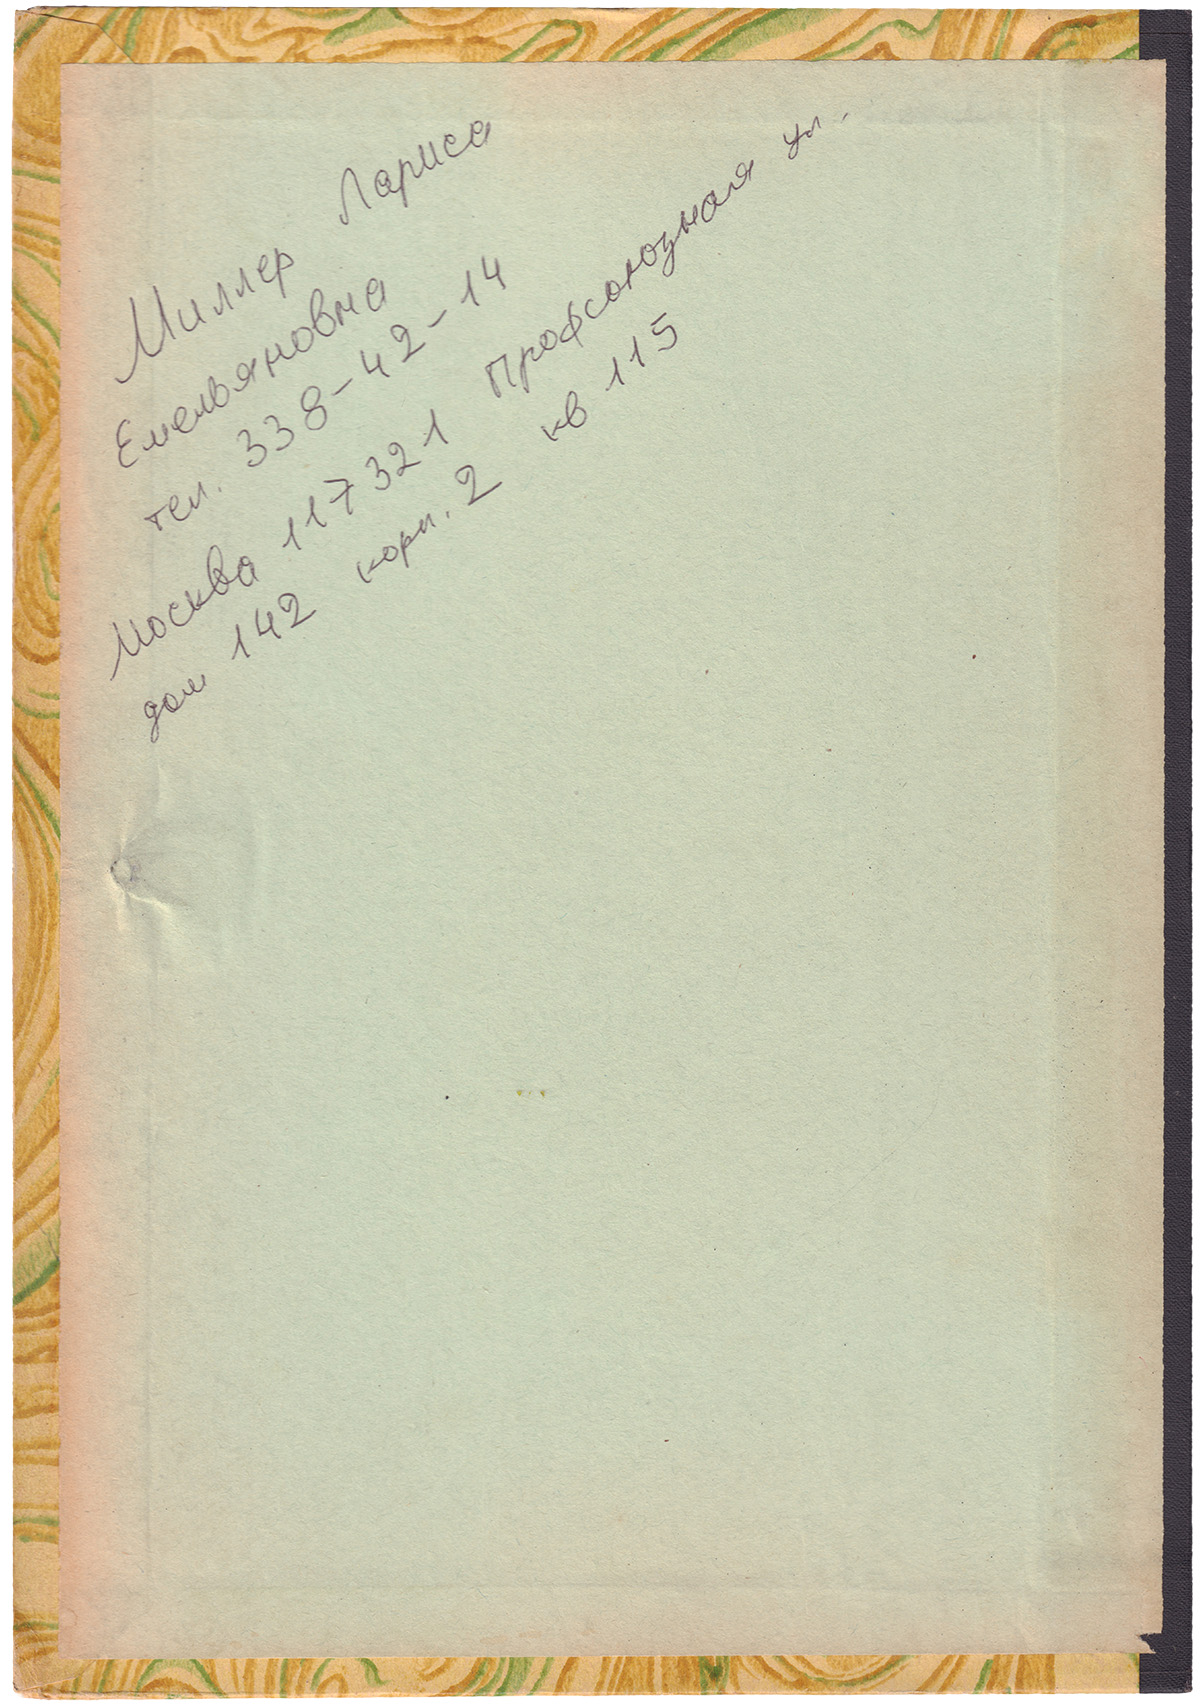 Миллер Лариса
Емельяновна
тел. 338-42-14
Москва 117321 Профсоюзная ул.
дом 142 корп. 2 кв 115